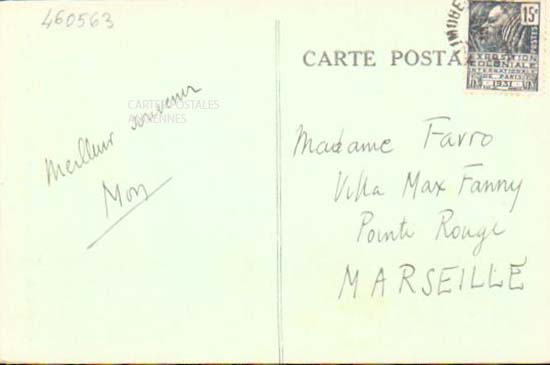 460563
CARTE POSTA
15c
POSTES
EXPOSITION
COLONIALE
INTERNATIONALE
DE PARIS
1931
CARTES POSTALES
ANCIENNES
Meilleur souvenir
Madame Favro
Villa Max Fanny
Pointe Rouge
MARSEILLE